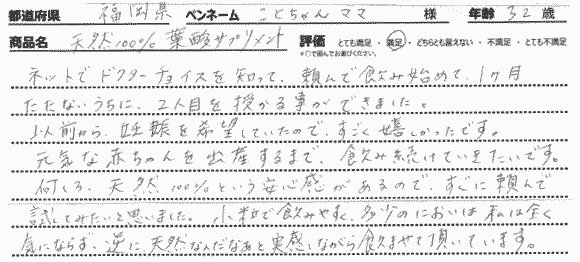 都道府県 福岡県 ペンネーム ことちゃんママ 様 年齢 32 歳
商品名 天然100% 葉酸サプリメント 評価 とても満足 ・ 満足 ・ どちらとも言えない ・ 不満足 ・ とても不満足
*○で囲んでお選びください。
ネットでドクターチョイスを知って、頼んで飲み始めて、1ヶ月
たたないうちに、2人目を授かる事ができました。
以前から、妊娠を希望していたので、すごく嬉しかったです。
元気な赤ちゃんを出産するまで、飲み続けていきたいです。
何しろ、天然100%という安心感があるので、すぐに頼んで
試してみたいと思いました。小粒で飲みやすく、多少のにおいは私は全く
気にならず、逆に、天然なんだなぁと実感しながら飲ませて頂いています。